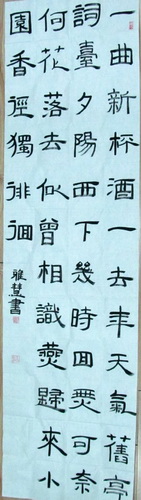 一曲新杯酒一去年天氣舊亭
詞臺夕陽西下幾時回無可奈
何花落去似曾相識燕歸來小
園香徑獨徘徊
雅慧書